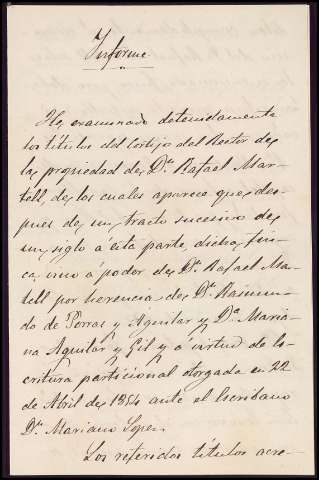 Informe
He examinado detenidamente
los títulos del Cortijo del Rector de
la propiedad de Dn. Rafael Mar-
tell, de los cuales aparece que des-
pues de un tracto sucesivo de
un siglo á esta parte, dicha fin-
ca vino á poder de Dn. Rafael Mar-
tell por herencia de Dn. Raimun-
do de Porras y Aguilar y Da. Maria-
na Aguilar y Gil y á virtud de Es-
critura particional otorgada en 22
de Abril de 1854 ante el Escribano
Dn. Mariano Lopez.
Los referidos títulos acre-